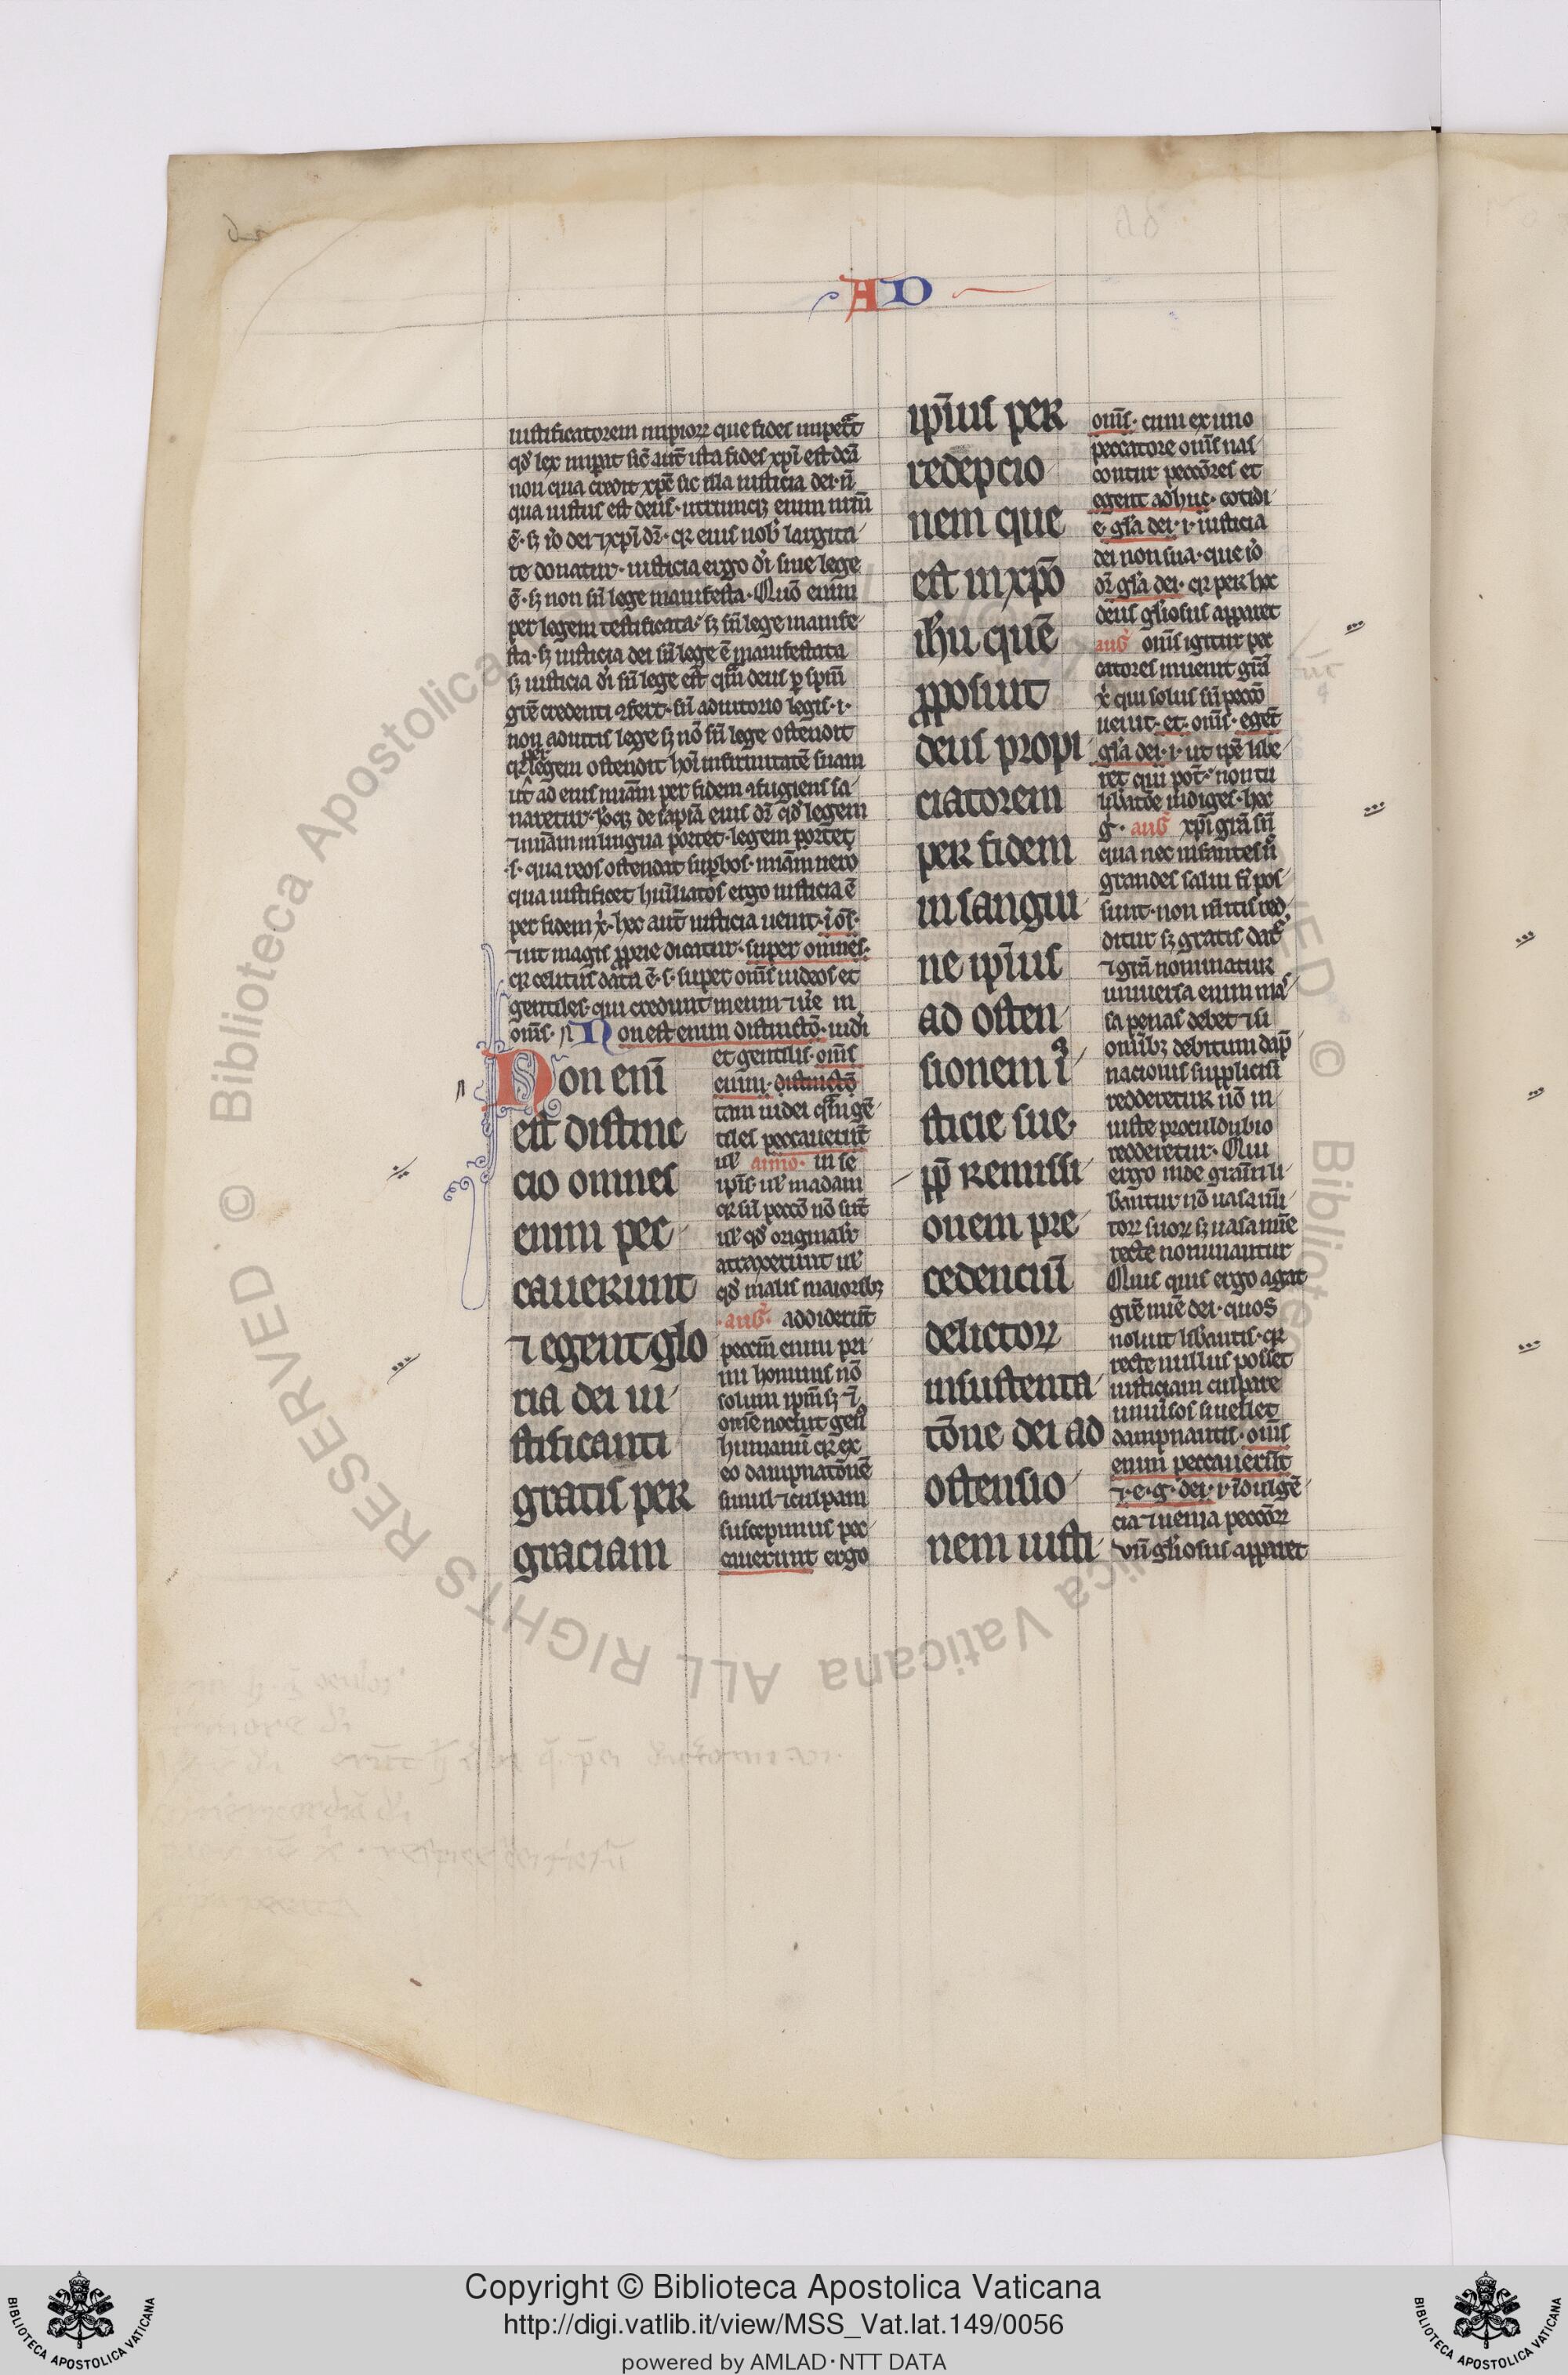 AD
iustificatorem impiorꝝ que fides impet̃t
qđ lex impat sic̃ aut̃ ista fides xp̃i est dc̃a
non qua credit xp̃c sic illa iusticia dei· ñ
qua iustus est deus· utrumqꝫ enim nrm̃
ẽ· sꝫ iõ dei ⁊ xp̃i dr̃· qꝛ eius nob̾ largita
te donatur· iusticia ergo di̾ sine lege
ẽ· sꝫ non sñ lege manifesta· Quõ enim
per legem testificata· sꝫ sñ lege manife
sta· sꝫ iusticia dei sñ lege ẽ manifestata
sꝫ iusticia di̾ sñ lege est qm̃ deus p̱ spm̃
gr̃e credenti ꝯfert· sñ adiutorio legis· i·
non adiutis lege sꝫ nõ sñ lege ostendit
qꝛ per legem ostendit hoĩ infirmitatẽ suam
ut ad eius mĩam per fidem ꝯfugiens sa
naretur· hocqꝫ de sapiã eius dr̃ qđ legem
⁊ miãm in lingua portet· legem portet
·s· qua reos ostendat supbos· miãm uero
qua iustificet humliatos ergo iusticia ẽ
per fidem x̾· hec aut̃ iusticia uenit· ĩ os̃·
⁊ ut magis ꝓprie dicatur· super omnes·
qꝛ celitus data ẽ· s· super oms̃ iudeos et
gentiles· qui credunt in eum ⁊ u̾e in
oms̃· Non est enim distinctõ· iudi̾
et gentilis· oms̃
enim· distinctõ
tam iudei qm̃ gẽ
tiles peccauerũt
ul̾ aimo· in se
ipis̃ ul̾ in adam
qꝛ sñ peccõ nõ sũt
ul̾ qđ originalr̃
atraxerunt ul̾
qđ malis maioribꝫ
·aug̾· addiderũt
peccm̃ enim pri
mi hominis nõ
solum ipm̃ sꝫ ⁊
om̃e nocuit gen̾
humanũ qꝛ ex
eo dampnatõnẽ
simul ⁊ culpam
suscepimus pec
cauerunt ergo
Non enĩ
est distinc
cio omnes
enim pec
cauerunt
⁊ egent glo
ria dei iu
stificanti
gratis per
graciam
ip̃ius per
redẽpcio
nem que
est in xp̃o
ihũ quẽ
ꝓposuit
deus propi
ciatorem
per fidem
in sangui
ne ip̃ius
ad osten
sionem i̾
sticie sue·
ꝓp̃ remissi
onem pre
cedenciũ
delictoꝝ
in sustenta
tõne dei ad
ostensio
nem iusti
oms̃· cum ex uno
peccatore oms̃ nas
contur peccõres et
egent adhuc· cotidi
e gl̃a dei· i· iusticia
dei non sua· que iõ
dr̃ gl̃a dei· qꝛ per hec
deus gliosus apparet
aug̾ oms̃ igitur pec
catores inuenit grã
x̾ qui solus sñ peccõ
uenit· et· oms̃· egẽt
gl̃a dei· i· ut ipẽ libe
ret qui pot̃· non tu
lib̾atõe indiges· hec
g̾· aug̾ xp̃i grã sñ
qua nec infantes ñ
grandes salui fi̾ pos
sunt· non m̃itis red
ditur sꝫ gratis dat̾
⁊ grã nominatur
uniuersa enim mas
sa penas debet ⁊ si
omib̾ꝫ debitum dãp
nacionis supplicĩũ
redderetur nõ in
iuste proculdubio
redderetur· Qui
ergo inde grã̃m li
b̾antur nõ uasa mi̾
toꝝ suoꝝ sꝫ uasa mĩe
recte nominantur
Quis quis ergo agat
gr̃e mĩe dei· quos
uoluit lib̾antis· qꝛ
recte nullus posset
iusticiam culpare
uniu̾sos si uellet
dampnantis· oms̃
enim peccauerũt
⁊· e· g· dei· i· ĩdulgẽ
cia ⁊ uenia peccõꝝ
vñ gliosus apparet
Copyright © Biblioteca Apostolica Vaticana
http://digi.vatlib.it/view/MSS_Vat.lat.149/0056
powered by AMLAD·NTT DATA
BIBLIOTECA APOSTOLICA VATICANA
BIBLIOTECA APOSTOLICA VATICANA
© Biblioteca Apostolica Vaticana ALL RIGHTS RESERVED